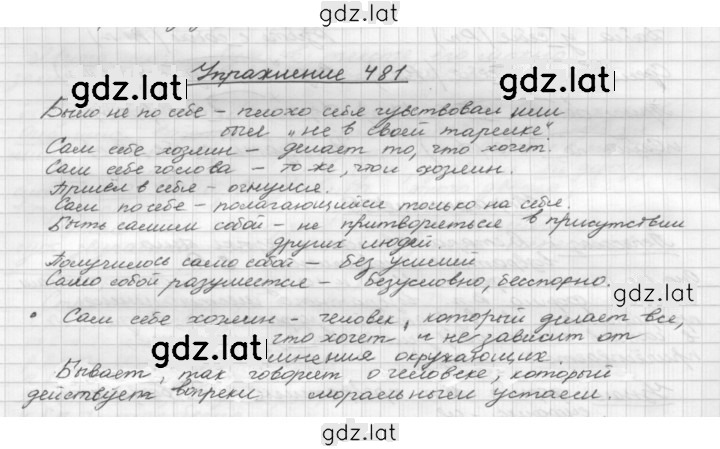 gdz.lat
Упражнение 481
gdz.lat
gdz.lat
Было не по себе – плохо себя чувствовал или
был „не в своей тарелке".
Сам себе хозяин – делает то, что хочет.
Сам себе голова – то же, что и хозяин.
Пришёл в себя – очнулся.
Сам по себе – полагающийся только на себя.
Быть самим собой – не притворяться в присутствии
других людей.
Получилось само собой – без усилий
Само собой разумеется – безусловно, бесспорно.
gdz.lat
• Сам себе хозяин – человек, который делает все,
что хочет и не зависит от
gdz.lat
мнения окружающих.
Бывает, так говорят о человеке, который
действует вопреки моральным устоям.
gdz.lat